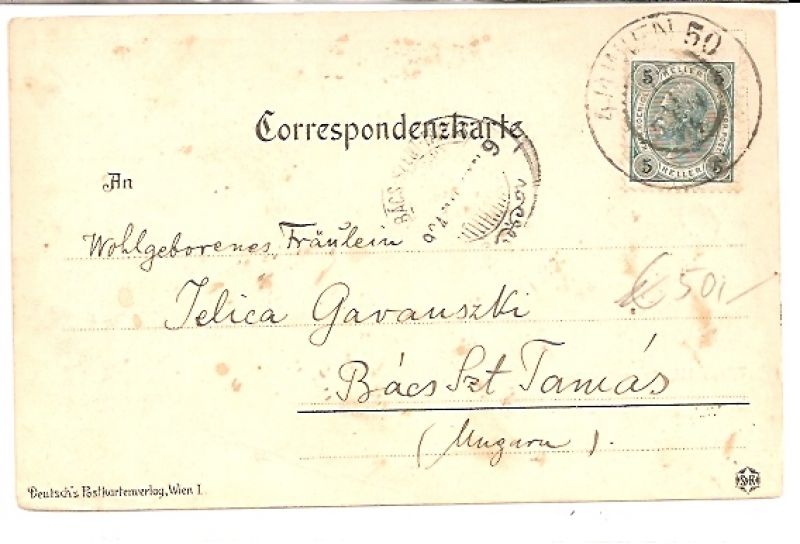 50
5 HELLER 5
5 HELLER 5
Correspondenzkarte.
An
BÁCS
Wohlgeborenes Fräulein
Jelica Gavanszki
50,-
Bács Szt Tamás
(Ungarn).
Deutsch's Postkartenverlag, Wien I.